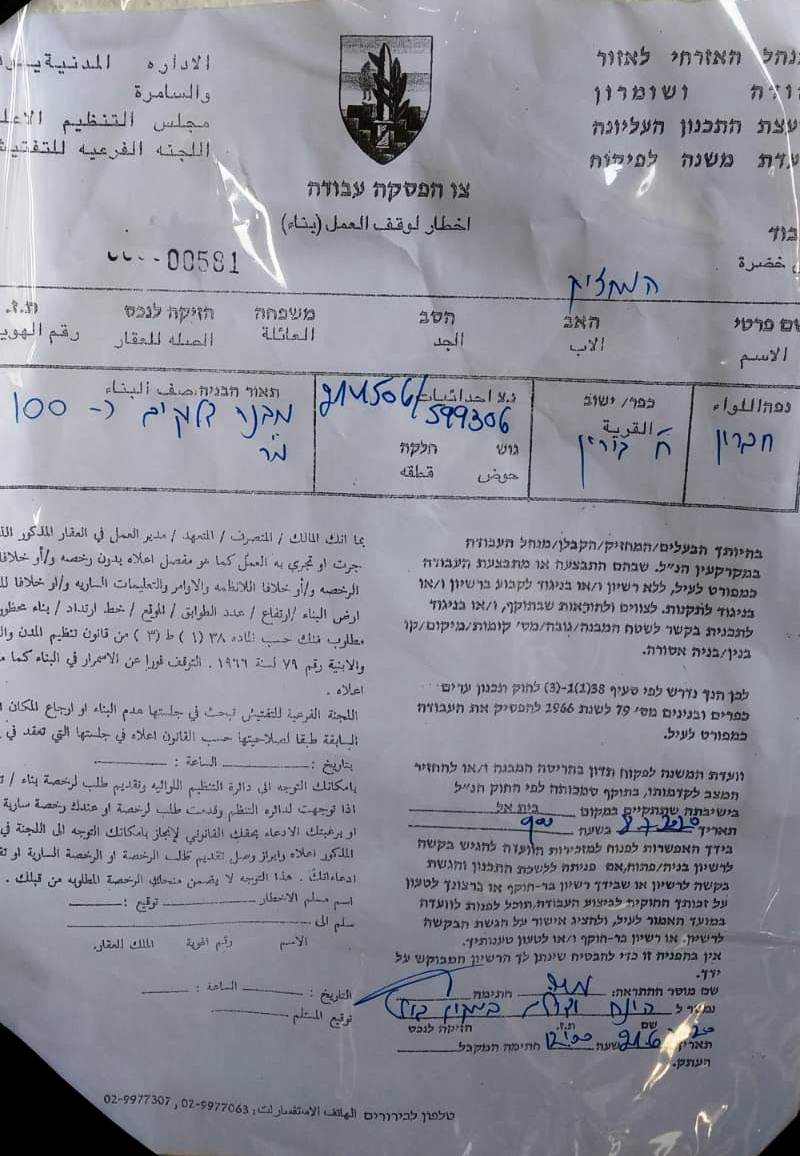 נהל האזרחי לאזור
ודה ושומרון
עצת התכנון העליונה
עדת משנה לפיקוח
الاداره المدنية
والسامرة
مجلس التنظيم الاعل
اللجنه الفرعيه للتفتيش
צו הפסקה עבודה
اخطار لوقف العمل (بناء)
00581
خضرة
המחזיק
שם פרטי האב הסב משפחה חזיקה לנכס ת.ז.
الاسم الاب الجد العائلة الصله للعقار رقم الهوي
נפה/اللواء
חברון
כפר/ ישוב
القرية
ח' בורין
נ.צ احداثيات
214506/
599306
גוש חלקה
حوض قطقه
תאור הבניה/صف البناء
מבנה בלוקים כ- 100
מ"ר
בהיותך הבעלים/המחזיק/הקבלן/מנהל העבודה
במקרקעין הנ"ל. שבהם התבצעה או מתבצעת העבודה
כמפורט לעיל, ללא רשיון ו/או בניגוד לקבוע ברשיון ו/או
בניגוד לתקנות. לצווים ולהוראות שבתוקף, ו/או בניגוד
לתכנית בקשר לשטח המבנה/גובה/מס' קומות/מיקום/קו
בנין/בניה אסורה.
לכן הנך נדרש לפי סעיף 38(1)-(3) לחוק תכנון ערים
כפרים ובנינים מס' 79 לשנת 1966 להפסיק את העבודה
כמפורט לעיל.
וועדת המשנה לפקוח תדון בהריסת המבנה ו/או להחזיר
המצב לקדמותו, בתוקף סמכותה לפי החוק הנ"ל
בישיבתה שתתקיים במקום בית אל
תאריך 8.7.2020 בשעה 900
בידך האפשרות לפנות למזכירות הוועדה להגיש בקשה
לרשיון בניה/פתוח, אם פניתה ללשכת התכנון והגשת
בקשה לרשיון או שבידך רשיון בר-תוקף או ברצונך לטעון
על זכותך החוקית לביצוע העבודה, תוכל לפנות לוועדה
במועד האמור לעיל, ולהציג אישור על הגשת הבקשה
לרשיון. או רשיון בר-תוקף ו/או לטעון טענותיך.
אין בהפניה זו כדי להבטיח שינתן לך הרשיון המבוקש על
ידך.
שם מוסר ההתראה: חתימה
נמסר ל הונח וצולם במקום
שם ת.ז. חזיקה לנכס
תאריך שעה 1200 חתימה המקבל
העתק.
بما انك المالك / المتصرف / المتعهد / مدير العمل في العقار المذكور
جرت او تجري به العمل كما هو مفصل اعلاه بدون رخصه و/أو خلافا
الرخصه و/أو خلافا للانظمه والاوامر والتعليمات الساريه و/او خلافا
ارض البناء /ارتفاع / عدد الطوابق / الموقع / خط ارتداد / بناء محظور
مطلوب منك حسب الماده ٣٨ (١) ط (٣) من قانون تنظيم المدن
والابنية رقم ٧٩ لسنة ١٩٦٦ . التوقف فورا عن الاسمرار في البناء كما
اعلاه .
اللجنة الفرعية للتفتيش تبحث في جلستها عدم البناء او ارجاع المكان
السابقة طبقا لصلاحيتها حسب القانون اعلاه في جلستها التي تعقد في
بتاريخ : الساعة :
بامكانك التوجه الى دائرة التنظيم اللوائيه وتقديم طلب لرخصة بناء /
اذا توجهت لدائره التنظم وقدمت طلب لرخصة او عندك رخصة سارية
او برغبتك الادعاء بحقك القانوني لإنجاز بامكانك التوجه الى اللجنة في
المذكور اعلاه وابراز وصل تقديم طلب الرخصة او الرخصة السارية او
ادعاءاتك . هذا التوجه لا يضمن منحك الرخصة المطلوبه من قبلك .
اسم مسلم الاخطار توقيع :
سلم الى
الاسم رقم الهوية المالك للعقار.
التاريخ : الساعة :
توقيع المستلم
טלפון לבירורים الهاتف الاستفسارات: 02-9977063 , 02-9977307